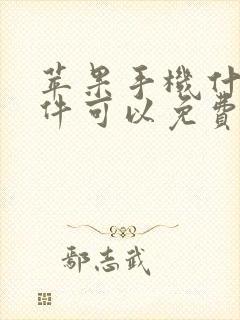 苹果手機什
件可以免費
鄢志武